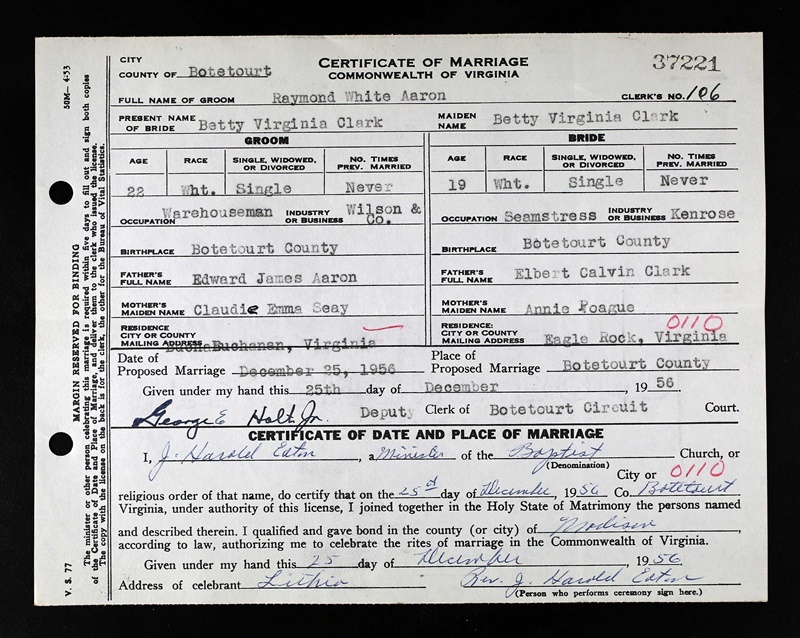 CITY
COUNTY OF Botetourt
CERTIFICATE OF MARRIAGE
COMMONWEALTH OF VIRGINIA
37221
FULL NAME OF GROOM Raymond White Aaron CLERK'S NO. 106
PRESENT NAME OF BRIDE Betty Virginia Clark MAIDEN NAME Betty Virginia Clark
GROOM BRIDE
AGE RACE SINGLE, WIDOWED, OR DIVORCED NO. TIMES PREV. MARRIED AGE RACE SINGLE, WIDOWED, OR DIVORCED NO. TIMES PREV. MARRIED
22 Wht. Single Never 19 Wht. Single Never
OCCUPATION Warehouseman INDUSTRY OR BUSINESS Wilson & Co. OCCUPATION Seamstress INDUSTRY OR BUSINESS Kenrose
BIRTHPLACE Botetourt County BIRTHPLACE Botetourt County
FATHER'S FULL NAME Edward James Aaron FATHER'S FULL NAME Elbert Calvin Clark
MOTHER'S MAIDEN NAME Claudie Emma Seay MOTHER'S MAIDEN NAME Annie Poague
RESIDENCE CITY OR COUNTY MAILING ADDRESS Buchanan, Virginia RESIDENCE CITY OR COUNTY MAILING ADDRESS Eagle Rock, Virginia 0110
Date of Proposed Marriage December 25, 1956 Place of Proposed Marriage Botetourt County
Given under my hand this 25th day of December, 1956
George E Holt, Jr. Deputy Clerk of Botetourt Circuit Court.
CERTIFICATE OF DATE AND PLACE OF MARRIAGE
I, J. Harold Eaton, a Minister of the Baptist Church, or
(Denomination)
City or 0110
religious order of that name, do certify that on the 25 day of December, 1956 Co. Botetourt
Virginia, under authority of this license, I joined together in the Holy State of Matrimony the persons named
and described therein. I qualified and gave bond in the county (or city) of Madison
according to law, authorizing me to celebrate the rites of marriage in the Commonwealth of Virginia.
Given under my hand this 25 day of December 1956
Address of celebrant Lithia Rev. J. Harold Eaton
(Person who performs ceremony sign here.)
V. S. 77 50M—4-53
MARGIN RESERVED FOR BINDING
The minister or other person celebrating this marriage is required within five days to fill out and sign both copies
of the Certificate of Date and Place of Marriage, and deliver them to the clerk who issued the license.
The copy with the license on the back is for the clerk, the other for the Bureau of Vital Statistics.